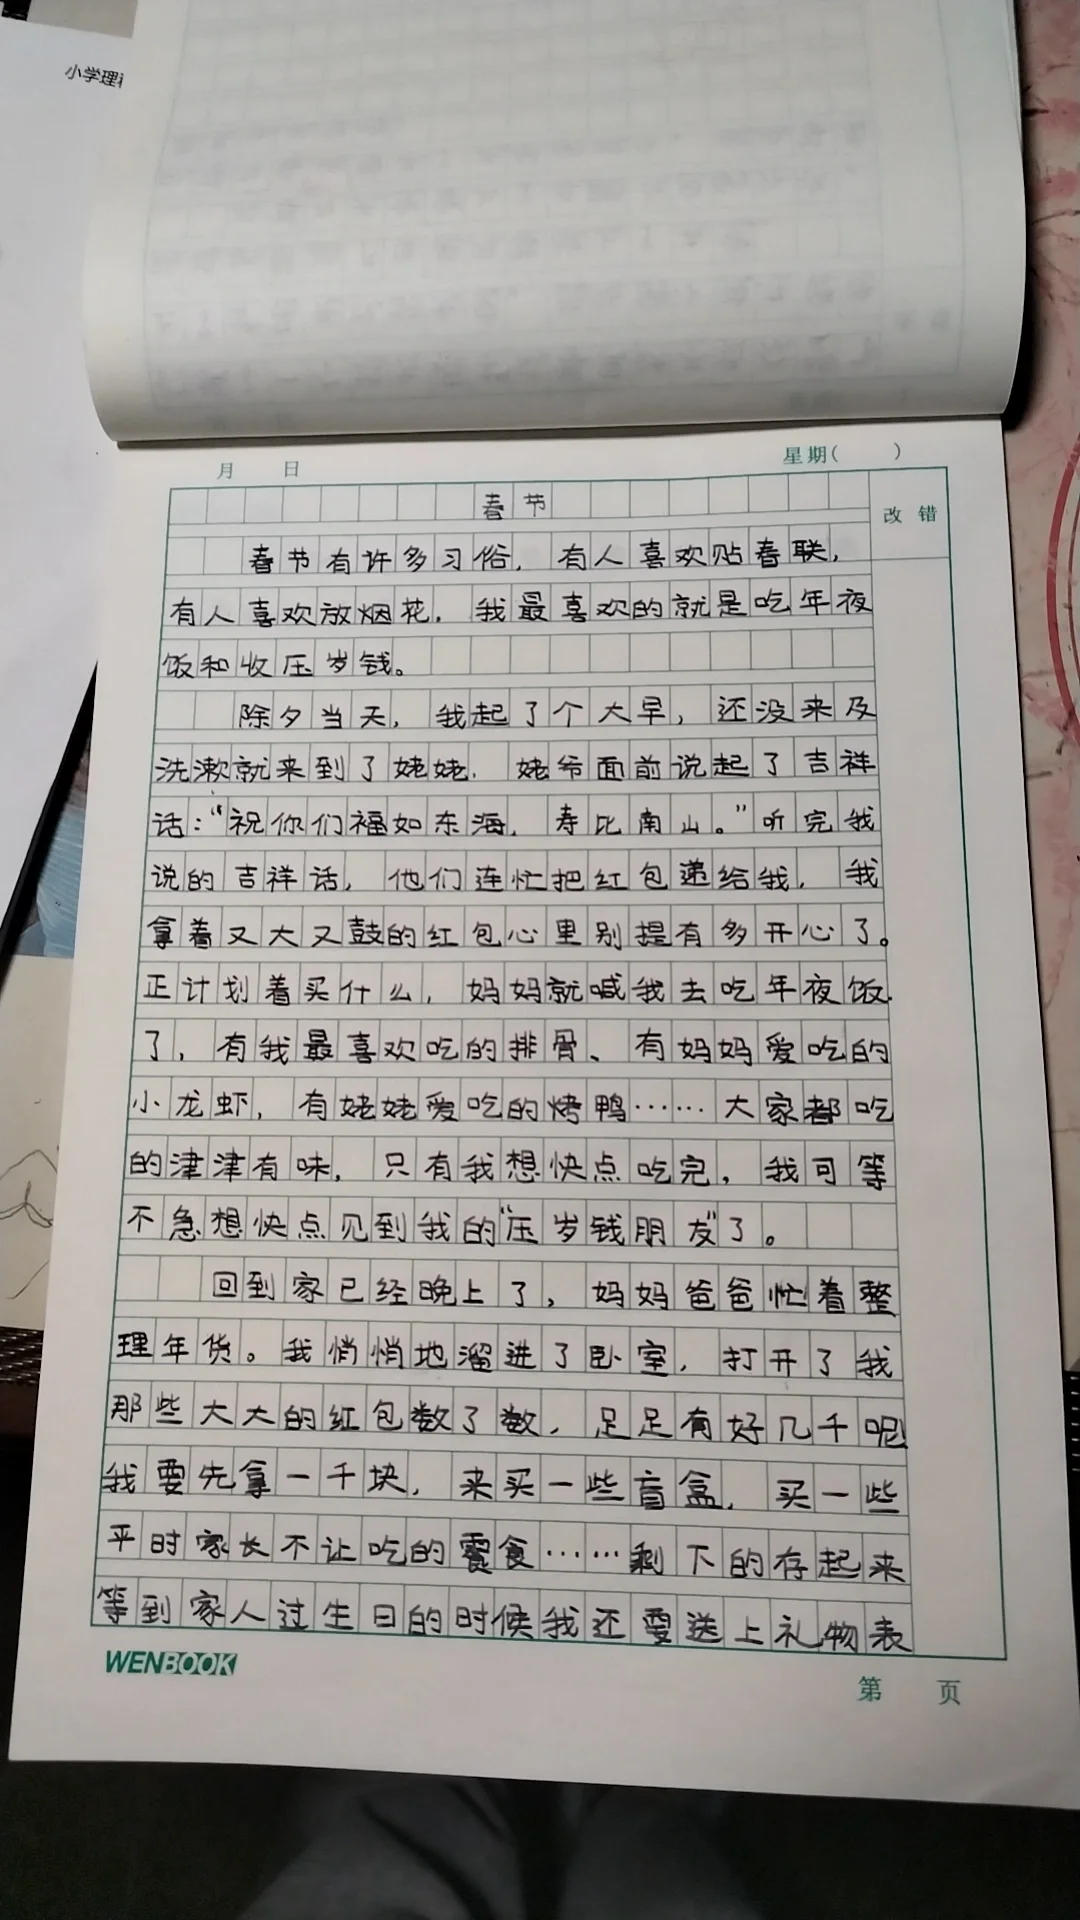 小学理
月 日 星期( )
改 错
春节
春节有许多习俗，有人喜欢贴春联，
有人喜欢放烟花，我最喜欢的就是吃年夜
饭和收压岁钱。
除夕当天，我起了个大早，还没来及
洗漱就来到了姥姥，姥爷面前说起了吉祥
话：“祝你们福如东海，寿比南山。”听完我
说的吉祥话，他们连忙把红包递给我，我
拿着又大又鼓的红包心里别提有多开心了。
正计划着买什么，妈妈就喊我去吃年夜饭
了，有我最喜欢吃的排骨、有妈妈爱吃的
小龙虾，有姥姥爱吃的烤鸭……大家都吃
的津津有味，只有我想快点吃完，我可等
不急想快点见到我的“压岁钱朋友”了。
回到家已经晚上了，妈妈爸爸忙着整
理年货。我悄悄地溜进了卧室，打开了我
那些大大的红包数了数，足足有好几千呢
我要先拿一千块，来买一些盲盒，买一些
平时家长不让吃的食……剩下的存起来
等到家人过生日的时候我还要送上礼物表
WENBOOK
第 页